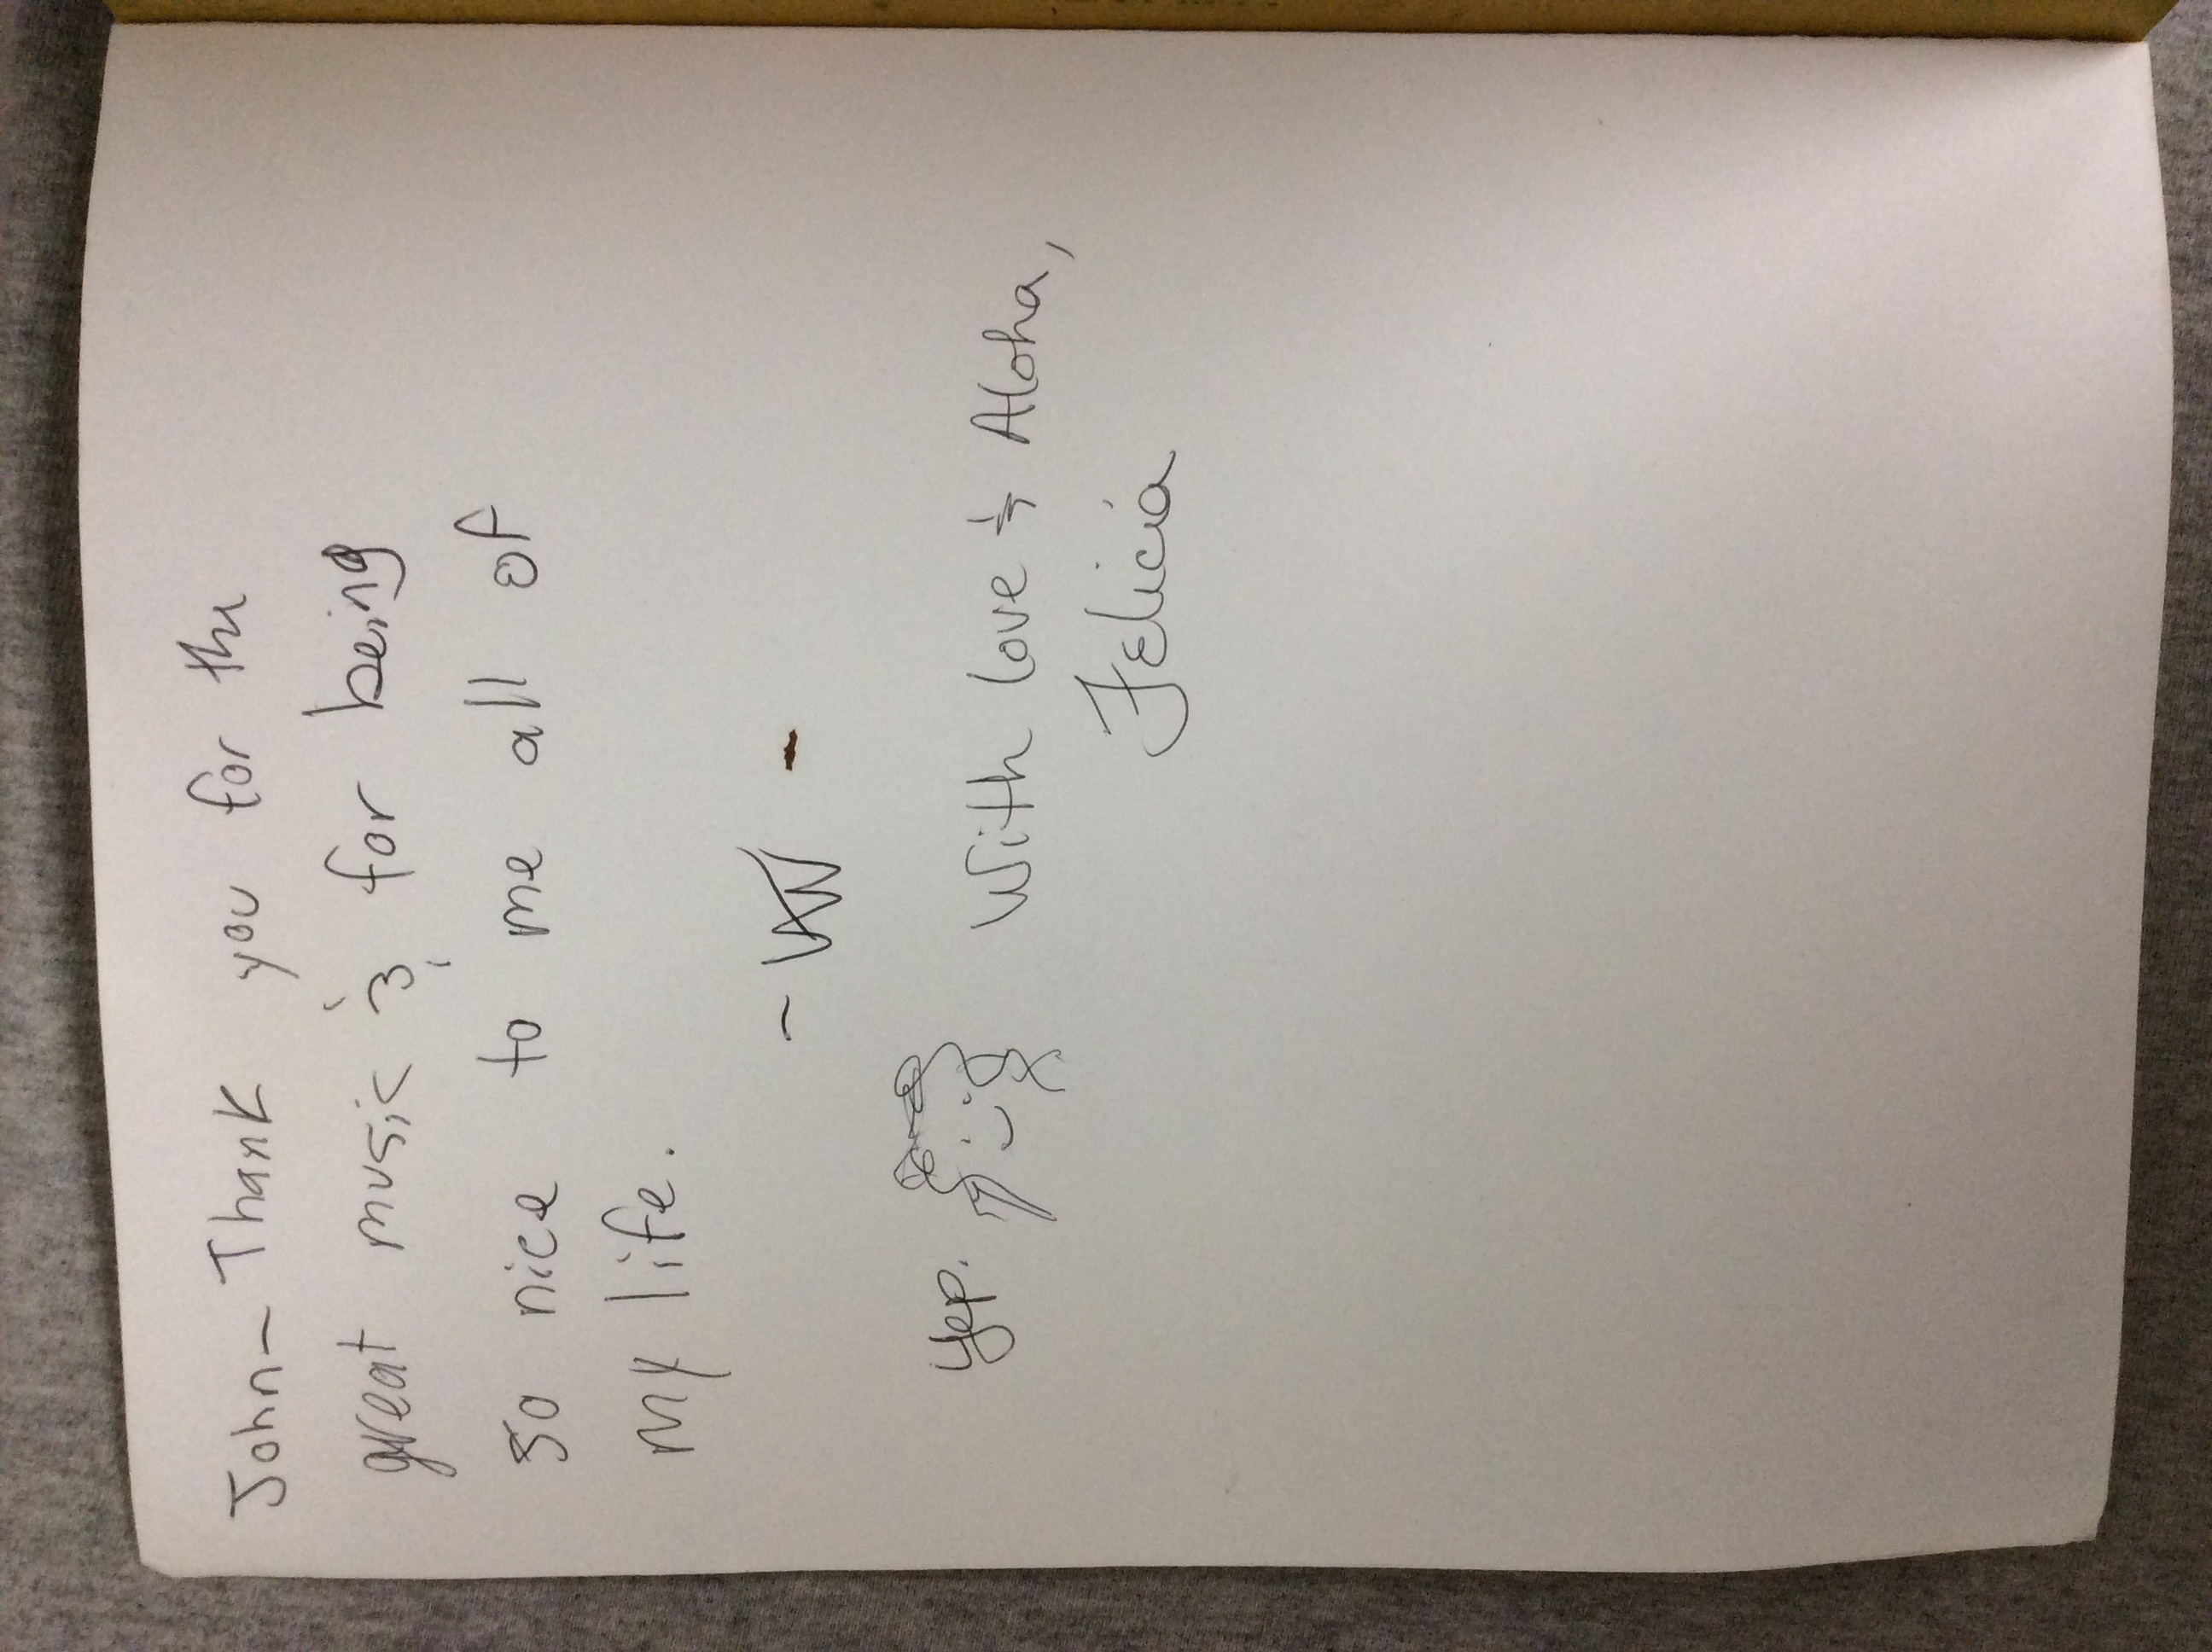 John- Thank you for the
great music & for being
so nice to me all of
my life.
Yep. With love & Aloha,
Felicia